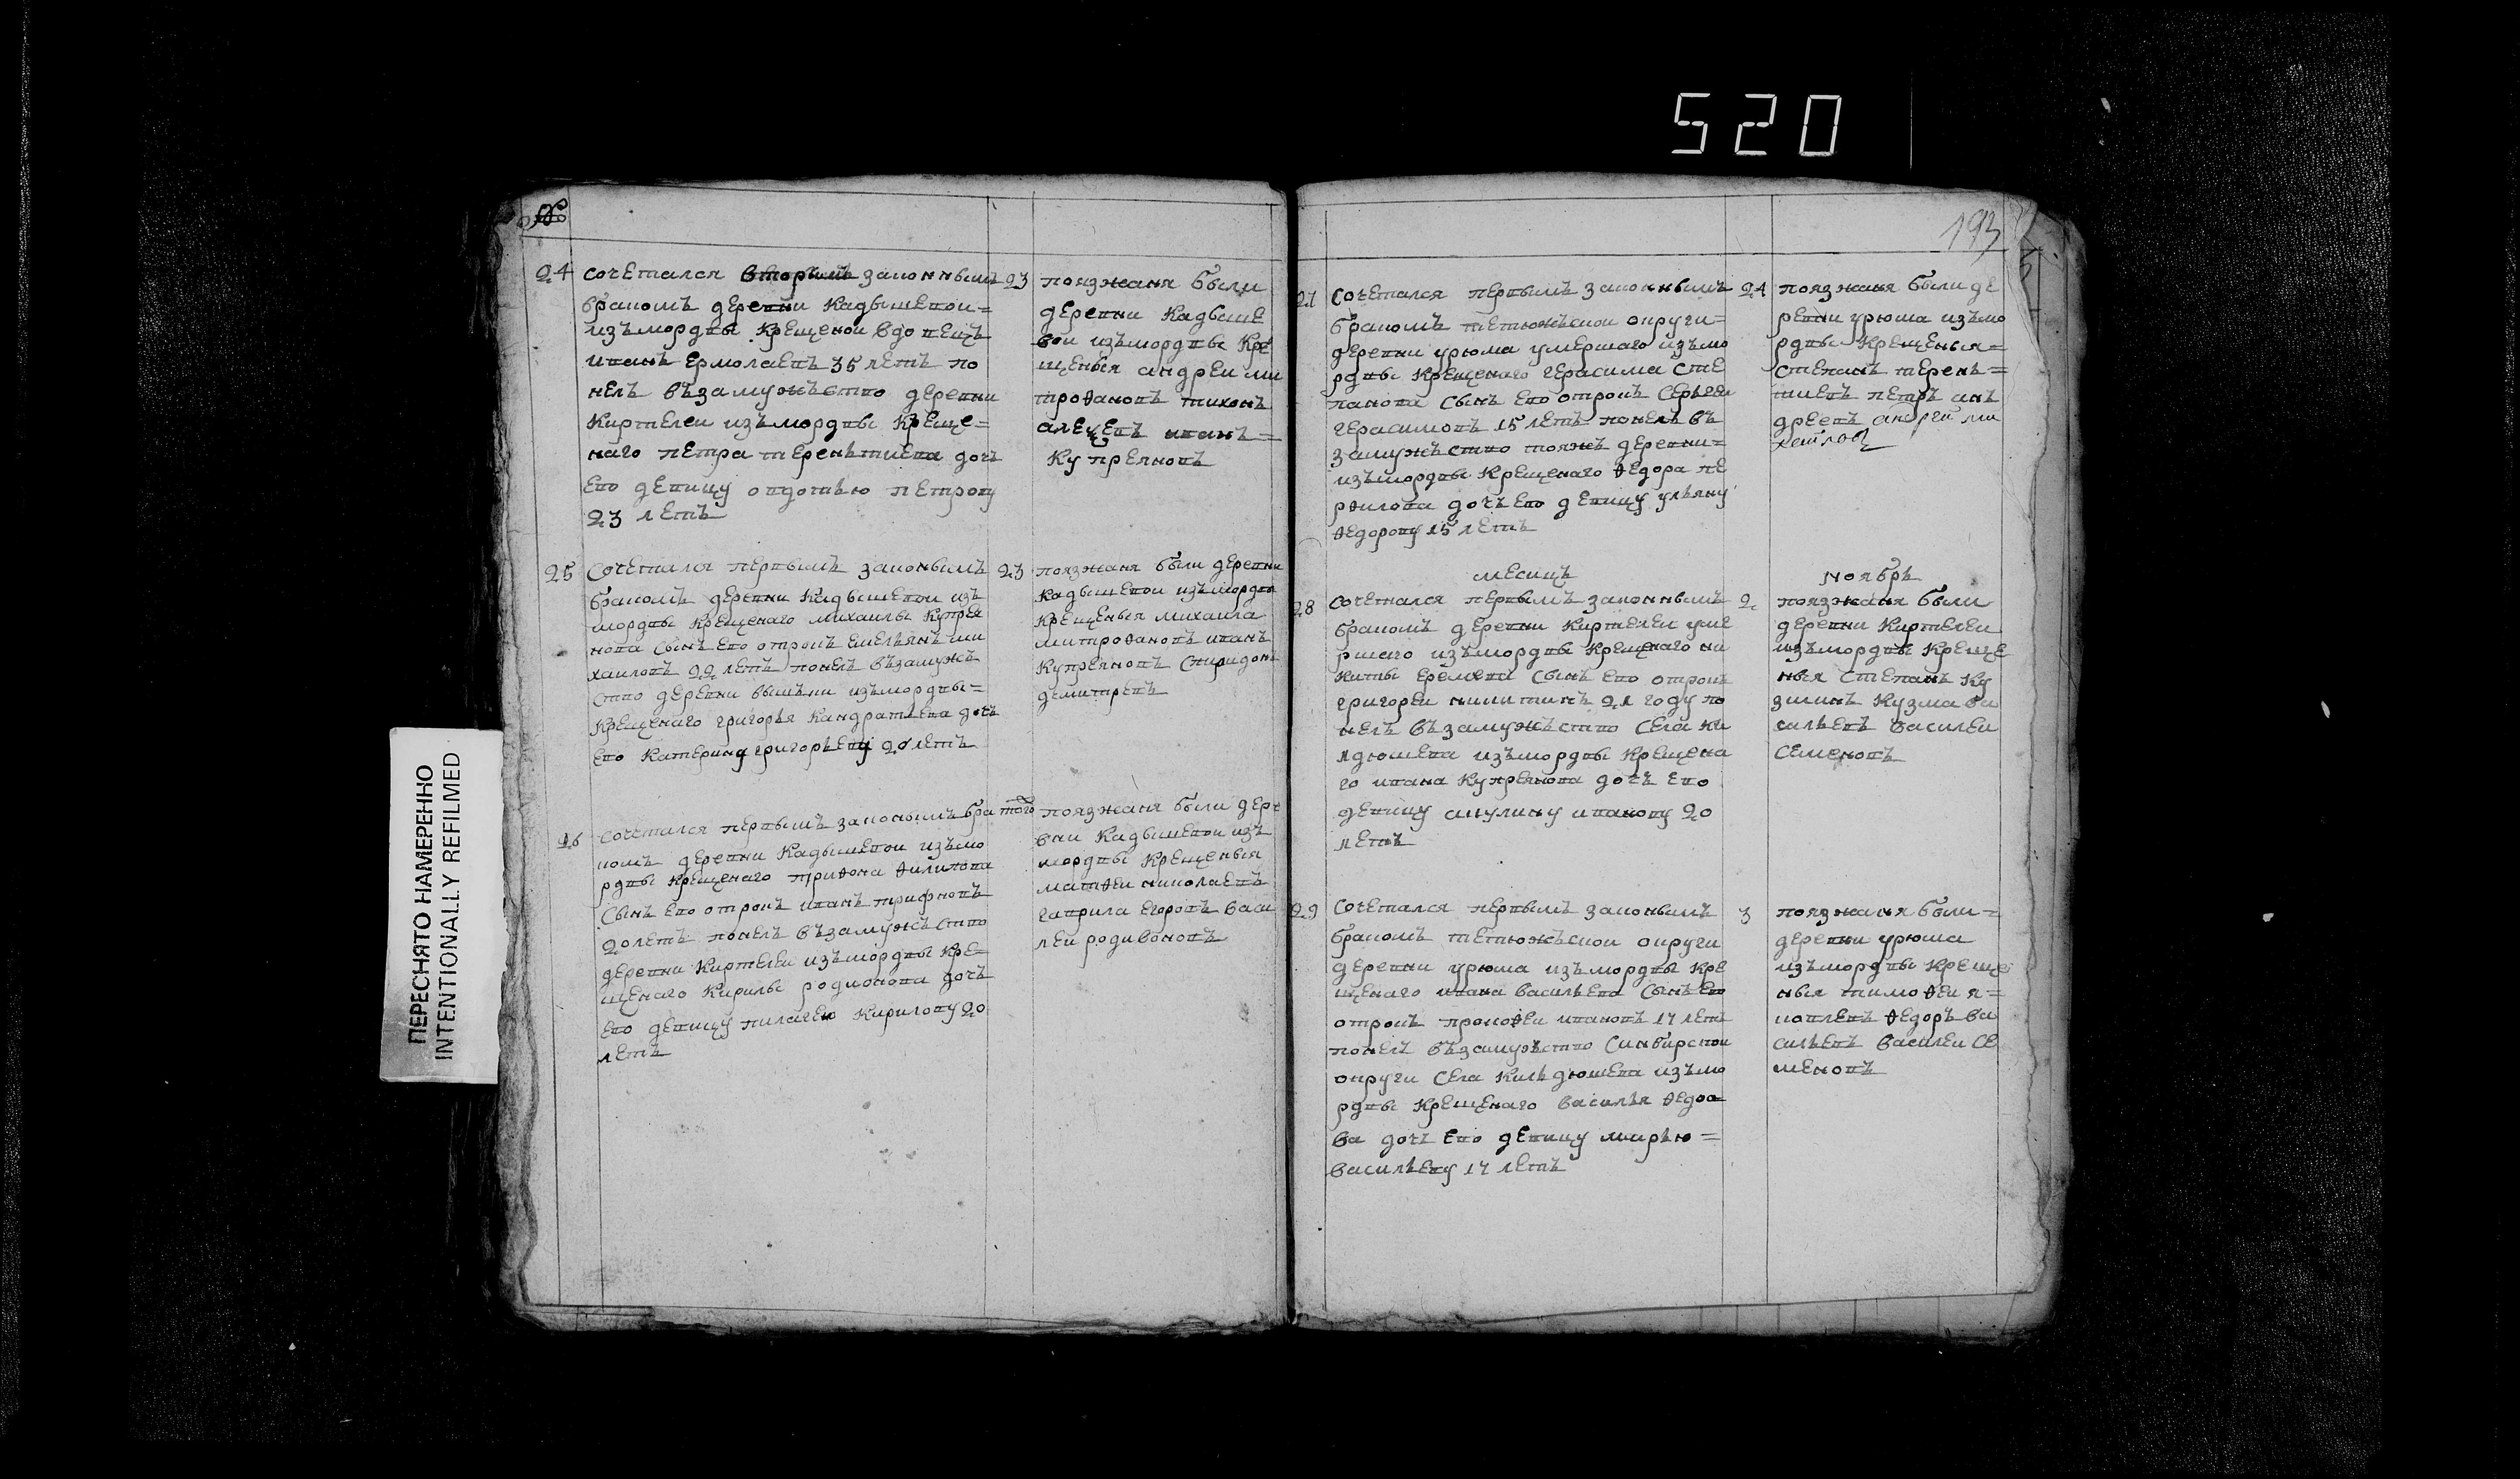 520
193
24 сочетался вторымъ законнымъ 23
бракомъ деревни Кадышевои=
изъ мордвы крещенои вдовецъ
иванъ ермолаевъ 35 летъ по
нелъ въ замужъство деревни
Киртелеи изъ мордвы креще=
наго петра терентиева дочь
ево девицу овдотью петрову
23 летъ
поязжаня были
деревни кадыше
вои изъ мордвы кре
щеныя андреи ми
трофановъ тихонъ
алеѯевъ иванъ=
купреяновъ
25 Сочетался первымъ законымъ 23
бракомъ деревни Кадышевои изъ
мордвы крещенаго михаилы купрея
нова сынъ ево отрокъ емельянъ ми
хаиловъ 22 летъ понелъ въ замужъ
ство деревни вышъки изъ мордвы=
крещенаго григорья кандратьева дочь
ево катерину григорьеву 20 летъ
поязжаня были деревни
кадышевои изъ мордвы
крещеныя михаила
митрофановъ иванъ
купреяновъ спиридонъ
демитревъ
26 сочетался первымъ законымъ бра того
комъ деревни Кадышевои изъ мо
рдвы крещенаго трифона филипова
сынъ ево отрокъ иванъ трифновъ
20 летъ понелъ въ замужъство
деревни Киртелеи изъ мордвы кре=
щенаго кирилы родионова дочь
ево девицу пилагею кирилову 20
летъ
поязжаня были дере
вни Кадышевои изъ
мордвы крещеныя
матфеи николаевъ
гаврила егоровъ васи
леи родивоновъ
27 Сочетался первымъ законнымъ 24
бракомъ тетюжъскои округи=
деревни урюма умершаго изъ мо
рдвы крещенаго герасима сте
панова сынъ ево отрокъ серьгеи
герасимовъ 15 летъ понелъ въ
замужъство тояжъ деревни=
изъ мордвы крещенаго федора пе
рфилова дочь ево девицу ульяну
федорову 15 летъ
поязжаня были де
ревни урюма изъ мо
рдвы крещеныя=
степанъ терень=
тиевъ петръ анъ
древъ андреи ми
хаиловъ
месицъ ноябръ
28 сочетался первымъ законнымъ 2
бракомъ деревни Киртелеи уме
ршаго изъ мордвы крещенаго ни
киты еремева сынъ ево отрокъ
григореи никитинъ 21 году по
нелъ въ замужъство села ки
лдюшева изъ мордвы крещена
го ивана купреянова дочь ево
девицу акулину иванову 20
летъ
поязжаня были
деревни Киртелеи
изъ мордвы креще
ныя степанъ ку
зминъ кузма ва
сильевъ василеи
семеновъ
29 Сочетался первымъ законымъ 3
бракомъ тетюжъскои округи
деревни урюма изъ мордвы кре
щенаго ивана васильева сынъ ево
отрокъ прокофеи ивановъ 17 летъ
понелъ въ замужъство синбирскои
округи села кильдюшева изъ мо
рдвы крещенаго василья федоо
ва дочь ево девицу марью=
васильеву 17 летъ
поязжаня были=
деревни урюма
изъ мордвы креще
ныя тимофеи я=
ковлевъ федоръ ва
сильевъ василеи се
меновъ
ПЕРЕСНЯТО НАМЕРЕННО
INTENTIONALLY REFILMED